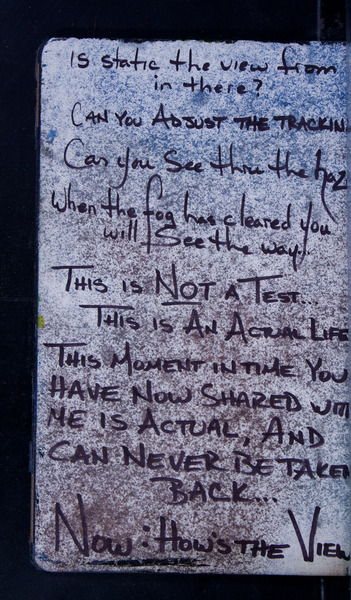 Is static the view from
in there?
CAN YOU ADJUST THE TRACKIN
Can you See thru the haz
When the fog has cleared you
will See the way..
THIS IS NOT A TEST...
THIS IS AN ACTUAL LIFE
THIS MOMENT IN TIME YOU
HAVE NOW SHARED WITH
ME IS ACTUAL, AND
CAN NEVER BE TAKEN
BACK...
NOW: HOW'S THE VIEW